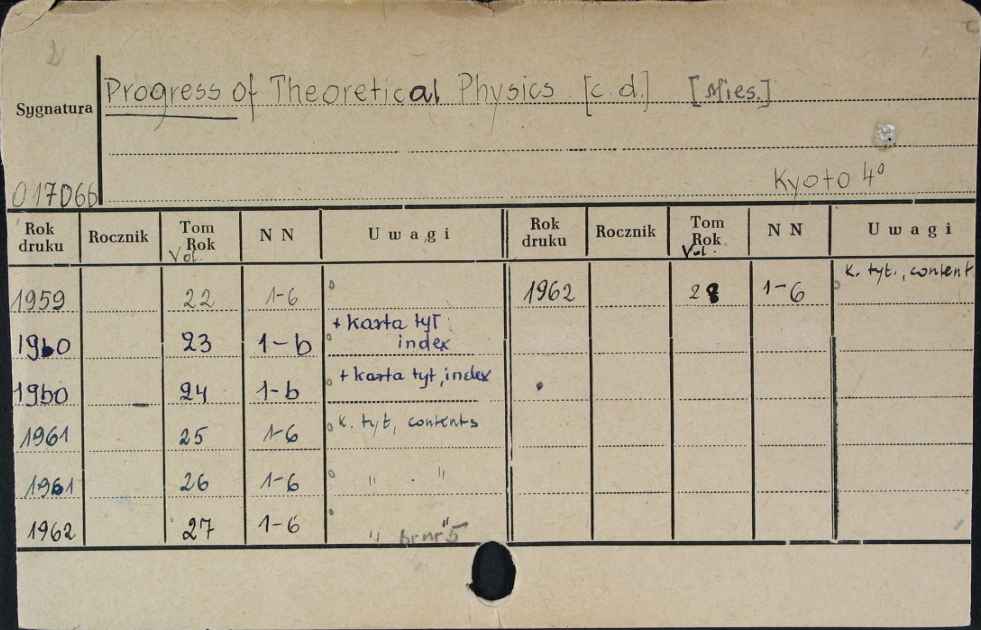 Progress of Theoretical Physics [c.d.] [Mies.]
Sygnatura
017066
Kyoto 4°
Rok druku Rocznik Tom Rok Vol. N N Uwagi Rok druku Rocznik Tom Rok Vol. N N Uwagi
1959 22 1-6 1962 28 1-6 k. tyt., content
1960 23 1-6 + karta tyt. index
1960 24 1-6 + karta tyt, index
1961 25 1-6 k. tyt, contents
1961 26 1-6 " "
1962 27 1-6 " " br nr 5